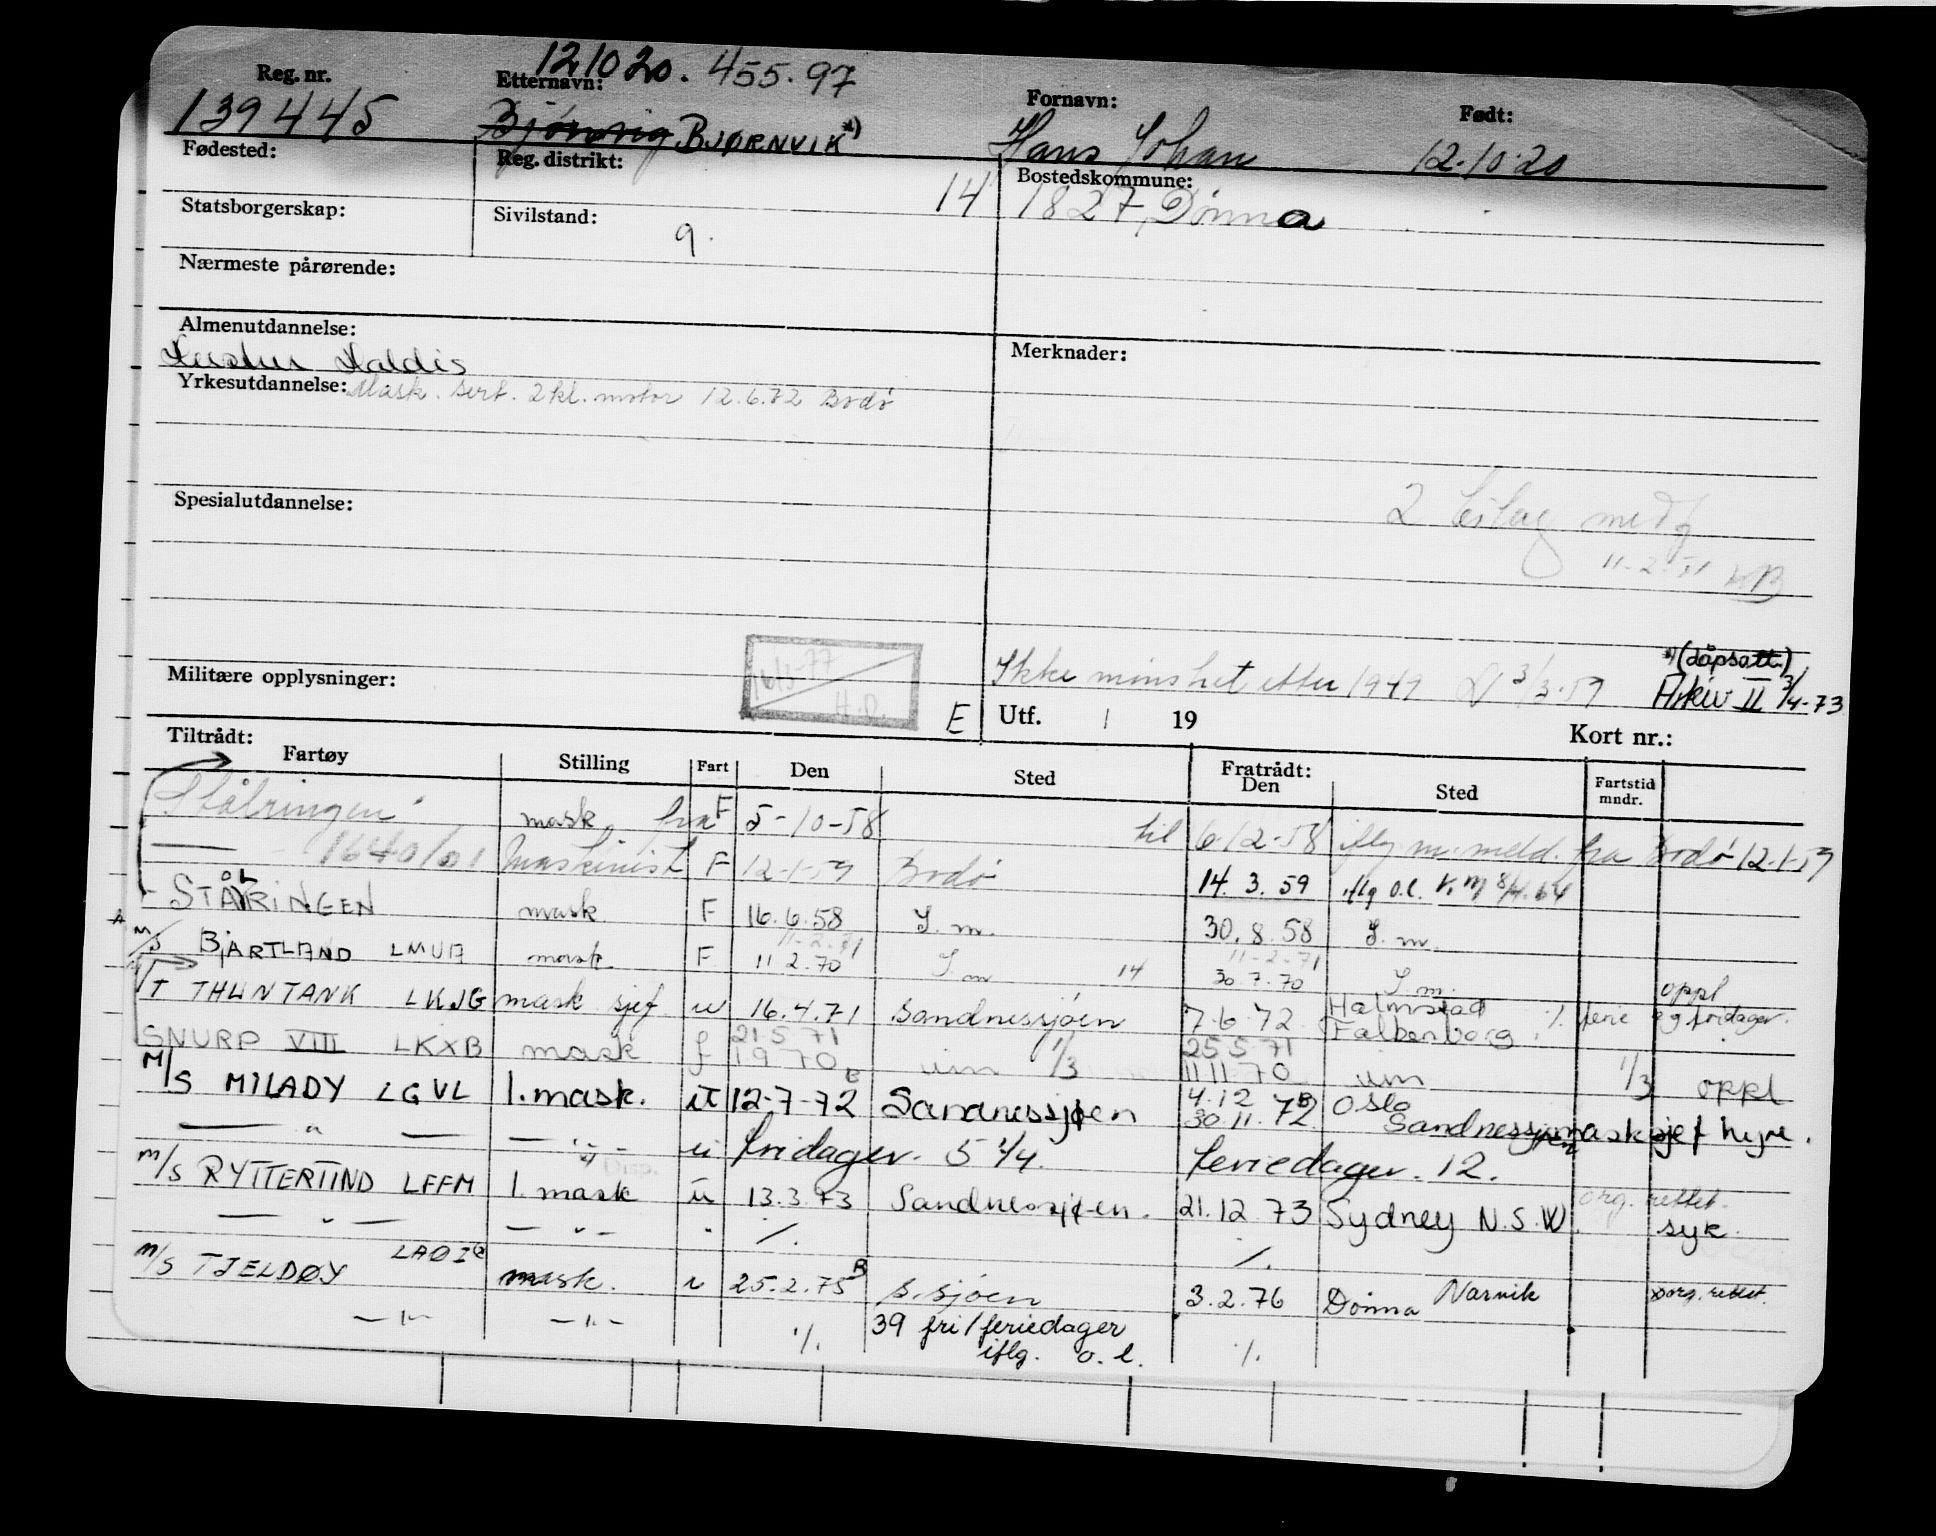 121020. 455.97
Reg. nr. Etternavn: Fornavn: Født:
139445 BJØRNVIK *) Hans Johan 12.10.20
Fødested: Reg. distrikt: 14 Bostedskommune:
1827, Dønna
Statsborgerskap: Sivilstand: 9.
Nærmeste pårørende:
Almenutdannelse: Merknader:
Haldis
Yrkesutdannelse: Mask. sert. 2 kl. motor 12.6.72 Bodø
Spesialutdannelse: 2 bilag medf
11-2-51
Ikke mønstret etter 1949 3/3-59 *) (dåpsatt.)
Militære opplysninger: 16/3-77 H.D. Arkiv II 3/4-73
E Utf. 1 19 Kort nr.:
Tiltrådt: Fratrådt:
Fartøy Stilling Fart Den Sted Den Sted Fartstid mndr.
Stålringen mask. fra F 5-10-58 til 6/12-58 iflg m. meld. fra Bodø 12-1-59
1640/01 Maskinist F 12-1-59 Bodø 14.3.59 iflg o.l.
STÅLRINGEN mask F 16.6.58 I.m. 30.8.58 I.m.
11-2-71 11-2-71
M/S BJARTLAND LMUA mask. F 11.2.70 I.m 14 30.7.70 I.m. oppl
M/T THUNTANK LKJG mask sjef u 16.4.71 Sandnessjøen 7.6.72 Halmstad Falkenberg ./. ferie og fridager.
21.5.71 25.5.71
SNURP VIII LKXB mask f 1.9.70 um 1/3 11.11.70 um 1/3 oppl
M/S MILADY LGVL 1. mask. u 12-7-72 Sandnessjøen 4.12.72 Oslo
30.11.72 Sandnessjøen masksjef hyre.
— " — — " — u fridager. 5 1/4. feriedager. 12.
M/S RYTTERTIND LFFM 1. mask u 13.3.73 Sandnessjøen. 21.12.73 Sydney N.S.W. org. rettet.
— " — — " — " ./. ./. syk.
M/S TJELDØY mask. u 25.2.75 S.sjøen 3.2.76 Dønna Narvik org. rettet.
— " — — " — ./. 39 fri/feriedager ./.
iflg. o.l.